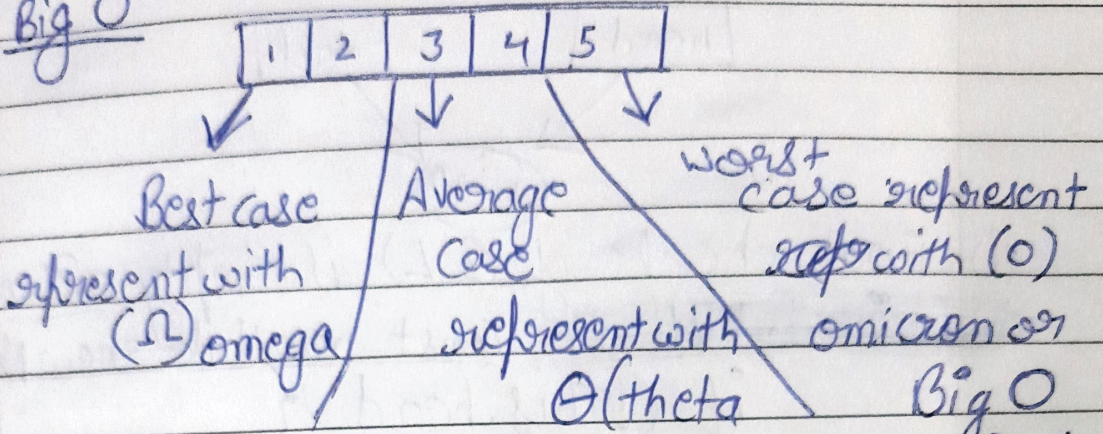 Big O
1 2 3 4 5
Best case
represent with
(Ω) omega
Average
case
represent with
θ(theta
worst
case represent
with (O)
omicron or
Big O